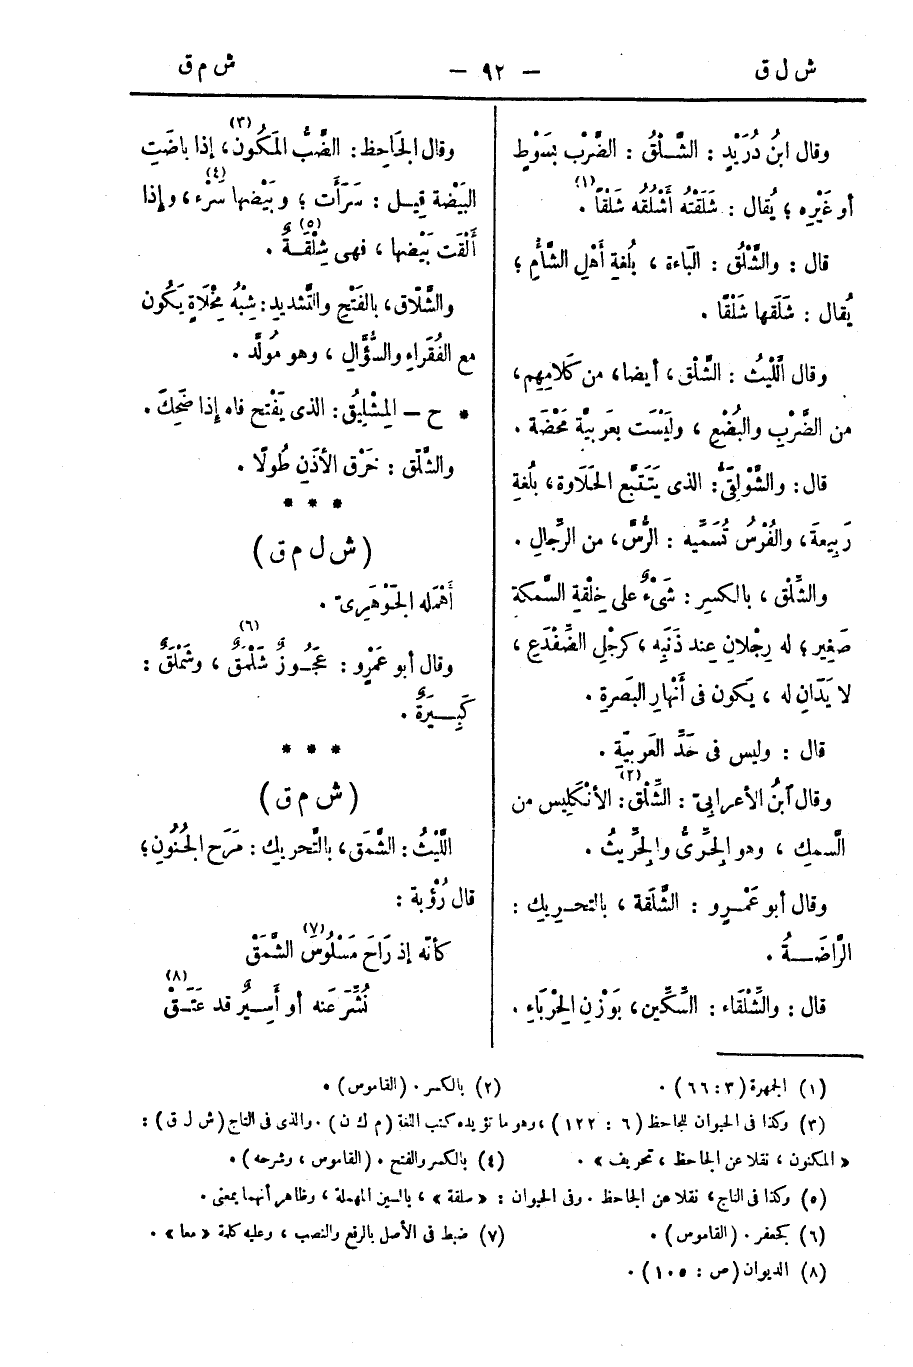 ش ل ق — ٩٢ — ش م ق
وقال ابنُ دُرَيْدٍ : الشَّلْقُ : الضَّرْب بسَوْطٍ
أو غَيْرِه ؛ يُقال : شَلَقْتُه أَشْلُقُه شَلْقًا(١) .
قال : والشَّلْق : الباءة ، بلُغةِ أَهْلِ الشَّأْمِ ؛
يُقال : شَلَقها شَلْقًا .
وقال اللَّيْثُ : الشَّلْق ، أيضا ، من كَلامِهم ،
من الضَّرْبِ والبُضْعِ ، ولَيْسَت بعَربيَّة مَحْضَة .
قال : والشَّوْلقِىُّ : الذى يَتَتَبَّع الحَلَاوة ، بلُغةِ
رَبِيعةَ ، والفُرْسُ تُسَمِّيه : الرُّسَّ ، من الرِّجالِ .
والشِّلْق ، بالكسرِ : شَىْءٌ على خِلْقةِ السَّمكة
صَغِير ؛ له رِجْلانِ عِند ذَنَبِه ، كرِجْلِ الضِّفْدَعِ ،
لا يَدَانِ له ، يَكون فى أَنْهارِ البَصرةِ .
قال : وليس فى حَدِّ العَربيّة .
وقال ابنُ الأعرابىّ : الشِّلْق(٢) : الأَنْكَلِيس من
السَّمكِ ، وهو الجِرِّىُّ والجِرِّيثُ .
وقال أبو عَمْـرٍو : الشَّلَقة ، بالتحـرِيكِ :
الرَّاضَـــةُ .
قال : والشِّلْقَاء : السِّكِّين ، بوَزْنِ الحِرْبَاءِ .
وقال الجَاحِظ : الضَّبُّ المَكُون(٣) ، إذا باضَتِ
البَيْضة قِيـل : سَرَأَت ؛ وبَيْضها سَرْء(٤) ، وإذا
أَلْقَت بَيْضها ، فهى شِلْقَــةٌ(٥) .
والشَّلّاق ، بالفَتْحِ والتَّشديدِ : شِبْهُ مِخْلَاةٍ يَكُون
مع الفُقَراءِ والسُّؤَّالِ ، وهو مُولَّد .
* ح — المِشْلِيقُ : الذى يَفْتح فاه إذا ضَحِكَ .
والشَّلْق : خَرْق الأذَنِ طُولًا .
* * *
( ش ل م ق )
أَهْمَله الجَوْهَرِىّ .
وقال أبو عَمْرٍو : عَجُـوزٌ شَلْمَقٌ(٦) ، وشَمْلَقٌ :
كَبِــيرَةٌ .
* * *
( ش م ق )
اللَّيْثُ : الشَّمَق ، بالتَّحريك : مَرَح الجُنُونِ ؛
قال رُؤْبة :
كأنّه إذ رَاحَ مَسْلُوسُ(٧) الشَّمَقْ
نُشِّرَ عنه أو أَسِــيرٌ قد عَتَــقْ(٨)
(١) الجمهرة (٣ : ٦٦) . (٢) بالكسر . (القاموس) .
(٣) وكذا فى الحيوان للجاحظ (٦ : ١٢٢) ، وهو ما تؤيده كتب اللغة (م ك ن) . والذى فى التاج (ش ل ق) :
« المكنون ، نقلا عن الجاحظ ، تحريف » . (٤) بالكسر والفتح . (القاموس ، وشرحه) .
(٥) وكذا فى التاج ، نقلا عن الجاحظ . وفى الحيوان : « سلقة » ، بالسين المهملة ، وظاهر أنهما بمعنى .
(٦) كجعفر . (القاموس) . (٧) ضبط فى الأصل بالرفع والنصب ، وعليه كلمة « معا » .
(٨) الديوان (ص : ١٠٥) .